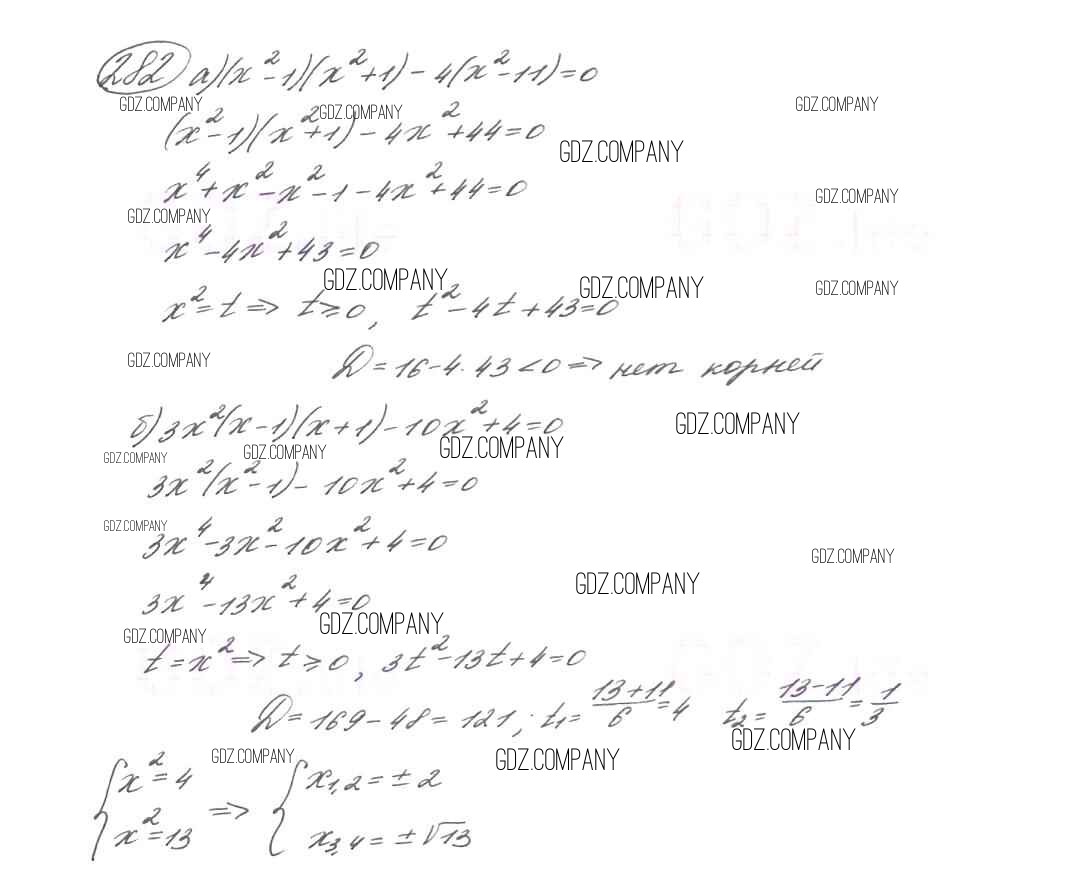 282 а) (x²-1)(x²+1) - 4(x²-11) = 0
GDZ.COMPANY GDZ.COMPANY GDZ.COMPANY
(x²-1)(x²+1) - 4x² + 44 = 0
GDZ.COMPANY
x⁴ + x² - x² - 1 - 4x² + 44 = 0
GDZ.COMPANY
GDZ.COMPANY
x⁴ - 4x² + 43 = 0
GDZ.COMPANY GDZ.COMPANY GDZ.COMPANY
x² = t => t ≥ 0, t² - 4t + 43 = 0
GDZ.COMPANY
D = 16 - 4·43 < 0 => нет корней
б) 3x²(x-1)(x+1) - 10x² + 4 = 0
GDZ.COMPANY
GDZ.COMPANY GDZ.COMPANY GDZ.COMPANY
3x²(x²-1) - 10x² + 4 = 0
GDZ.COMPANY
3x⁴ - 3x² - 10x² + 4 = 0
GDZ.COMPANY
GDZ.COMPANY
3x⁴ - 13x² + 4 = 0
GDZ.COMPANY GDZ.COMPANY
t = x² => t ≥ 0, 3t² - 13t + 4 = 0
D = 169 - 48 = 121; t₁ = (13+11)/6 = 4 t₂ = (13-11)/6 = 1/3
GDZ.COMPANY GDZ.COMPANY GDZ.COMPANY
{ x² = 4 => { x₁,₂ = ± 2
x² = 13 x₃,₄ = ± √13